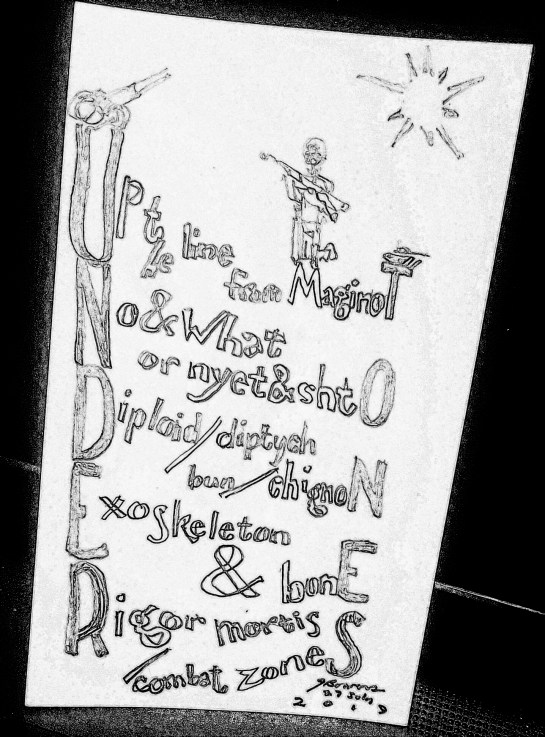 Up the line
from MaginoT
No & What
or nyet & shtO
Diploid / diptych
bun / chignoN
Exoskeleton
& bonE
Rigor mortis
/ combat zoneS
2019